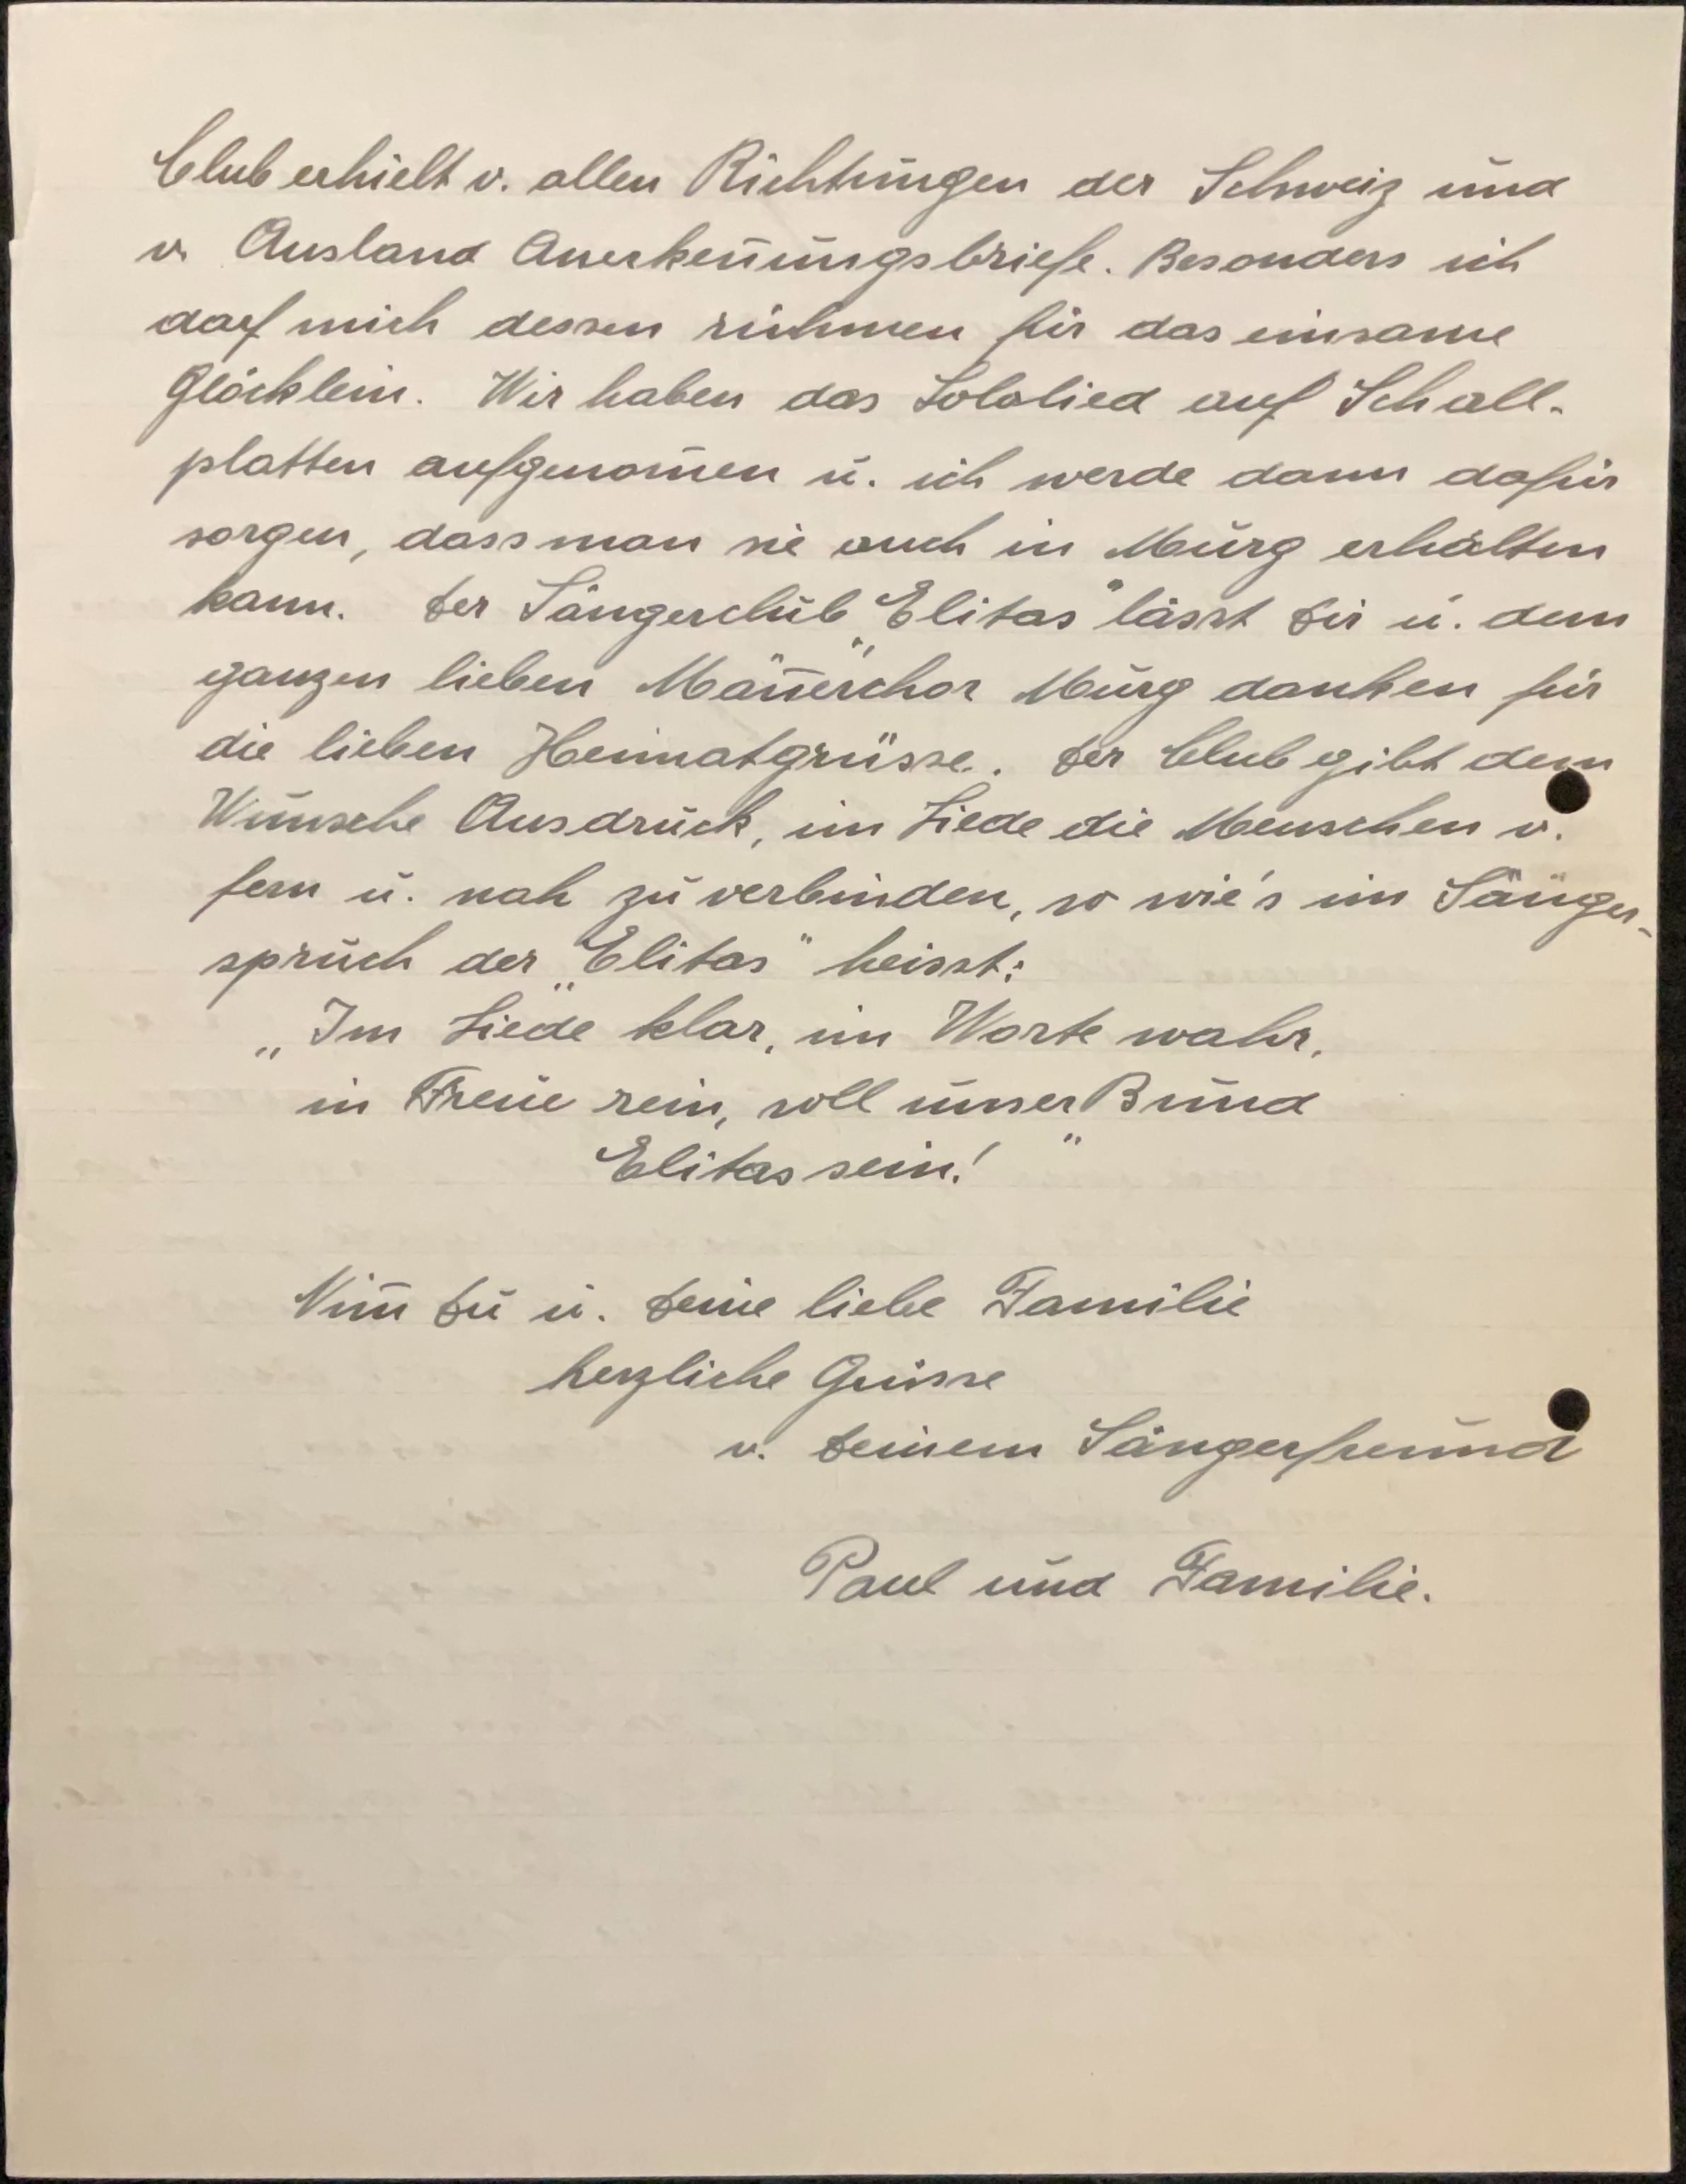 Club erhielt v. allen Richtungen der Schweiz und
v. Ausland Anerkeñungsbriefe. Besonders ich
darf mich dessen rühmen für das einsame
Glöcklein. Wir haben das Sololied auf Schall-
platten aufgenom̄en u. ich werde dann dafür
sorgen, dass man sie auch in Murg erhalten
kann. Der Sängerclub „Elitas“ lässt Dir u. dem
ganzen lieben Mäñerchor Murg danken für
die lieben Heimatgrüsse. Der Club gibt dem
Wunsche Ausdruck, im Liede die Menschen v.
fern u. nah zu verbinden, so wie's im Sänger-
spruch der „Elitas“ heisst:
„Im Liede klar, im Worte wahr,
in Treue rein, soll unser Bund
Elitas sein!“
Nim̄ Du u. Deine liebe Familie
herzliche Grüsse
v. Deinem Sängerfreund
Paul und Familie.